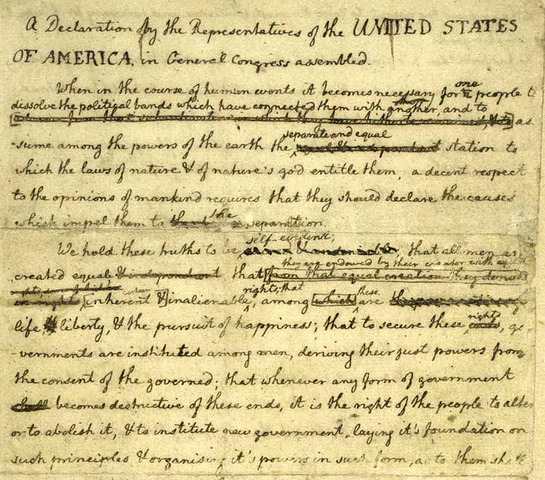 A Declaration by the Representatives of the UNITED STATES
OF AMERICA, in General Congress assembled.
When in the course of human events it becomes necessary for one people to
dissolve the political bands which have connected them with another, and to
as
separate and equal
-sume among the powers of the earth the station to
which the laws of nature & of nature's god entitle them, a decent respect
to the opinions of mankind requires that they should declare the causes
which impel them to the separation.
self-evident,
We hold these truths to be that all men are
they are endowed by their creator with
created equal & independant that from that equal creation they derive
rights; that these
inherent & inalienable, among which are the
rights
life & liberty, & the pursuit of happiness; that to secure these ends, go
-vernments are instituted among men, deriving their just powers from
the consent of the governed; that whenever any form of government
shall becomes destructive of these ends, it is the right of the people to alter
or to abolish it, & to institute new government, laying it's foundation on
such principles & organising it's powers in such form, as to them sh